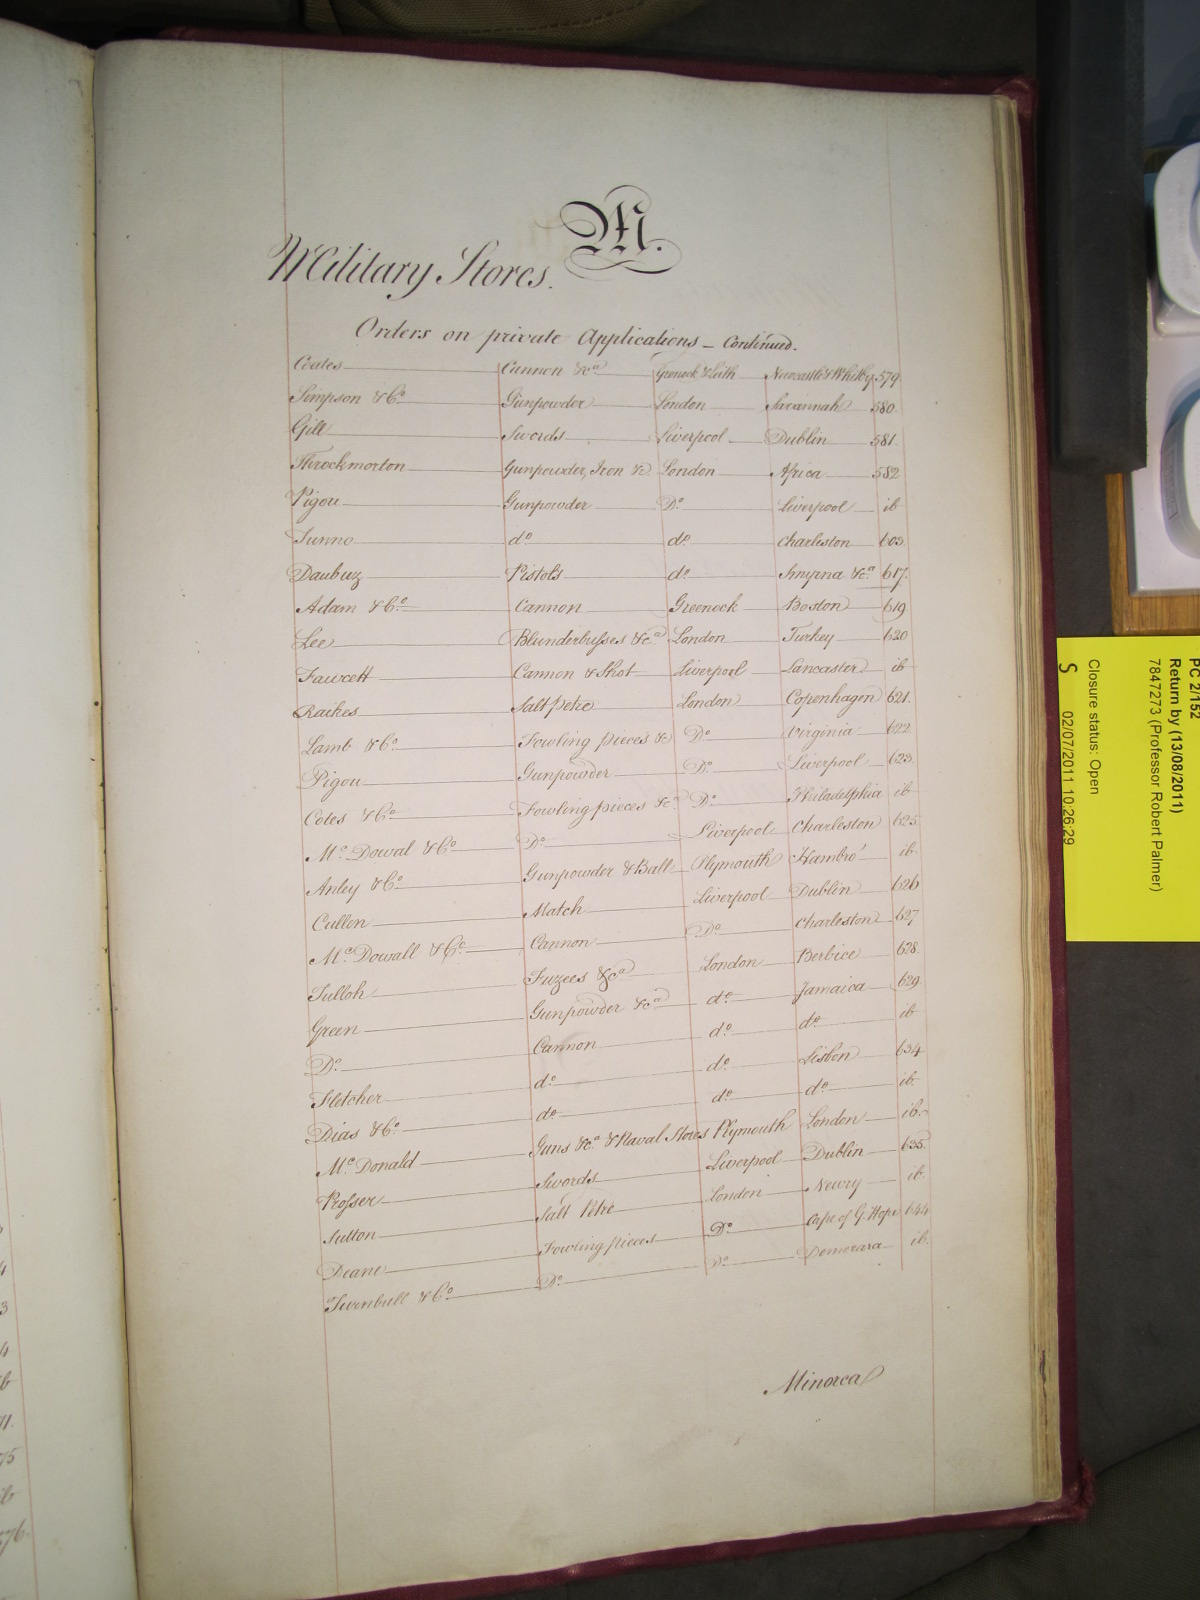 M.
Military Stores.
Orders on private Applications – Continued.
Coates Cannon &ca Grenock & Leith Newcastle & Whitby 579.
Simpson & Co. Gunpowder London Savannah 580.
Gill Swords Liverpool Dublin 581.
Throckmorton Gunpowder, Iron &c London Africa 582
Pigou Gunpowder Do. Liverpool ib
Tunno do. do. Charleston 603.
Daubuz Pistols do. Smyrna &ca. 617.
Adam & Co. Cannon Greenock Boston 619
Lee Blunderbusses &ca London Turkey 620
Fawcett Cannon & Shot Liverpool Lancaster ib
Raikes Saltpetre London Copenhagen 621.
Lamb & Co. Fowling pieces &c Do. Virginia 622.
Pigou Gunpowder Do. Liverpool 623.
Cotes & Co. Fowling pieces &ca Do. Philadelphia ib
Mc. Dowal & Co. Do. Liverpool Charleston 625.
Anley & Co. Gunpowder & Ball Plymouth Hambro' ib
Cullen Match Liverpool Dublin 626
Mc. Dowall & Co. Cannon Do. Charleston 627
Tulloh Fuzees &ca London Berbice 628.
Green Gunpowder &ca do. Jamaica 629
Do. Cannon do. do. ib
Fletcher do. do. Lisbon 634
Dias & Co. do. do. do. ib.
Mc. Donald Guns &ca. & Naval Stores Plymouth London ib.
Prosser Swords Liverpool Dublin 635.
Sutton Salt Petre London Newry ib.
Deane Fowling pieces Do. Cape of G. Hope 644
Turnbull & Co. Do. Do. Demerara ib.
Minorca
PC 2/152
Return by (13/08/2011)
7847273 (Professor Robert Palmer)
Closure status: Open
S 02/07/2011 10:26:29
4
3
4
b
71.
75
ib
576.